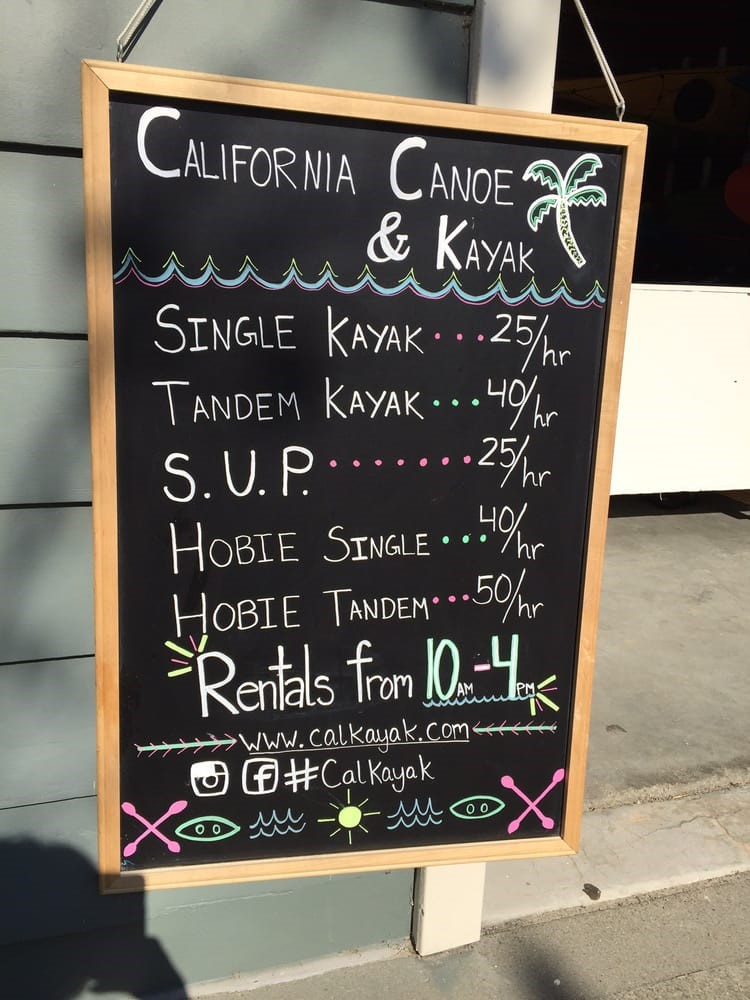 CALIFORNIA CANOE
& KAYAK
SINGLE KAYAK...25/hr
TANDEM KAYAK...40/hr
S.U.P.......25/hr
HOBIE SINGLE...40/hr
HOBIE TANDEM...50/hr
Rentals from 10AM-4PM
www.calkayak.com
#CalKayak